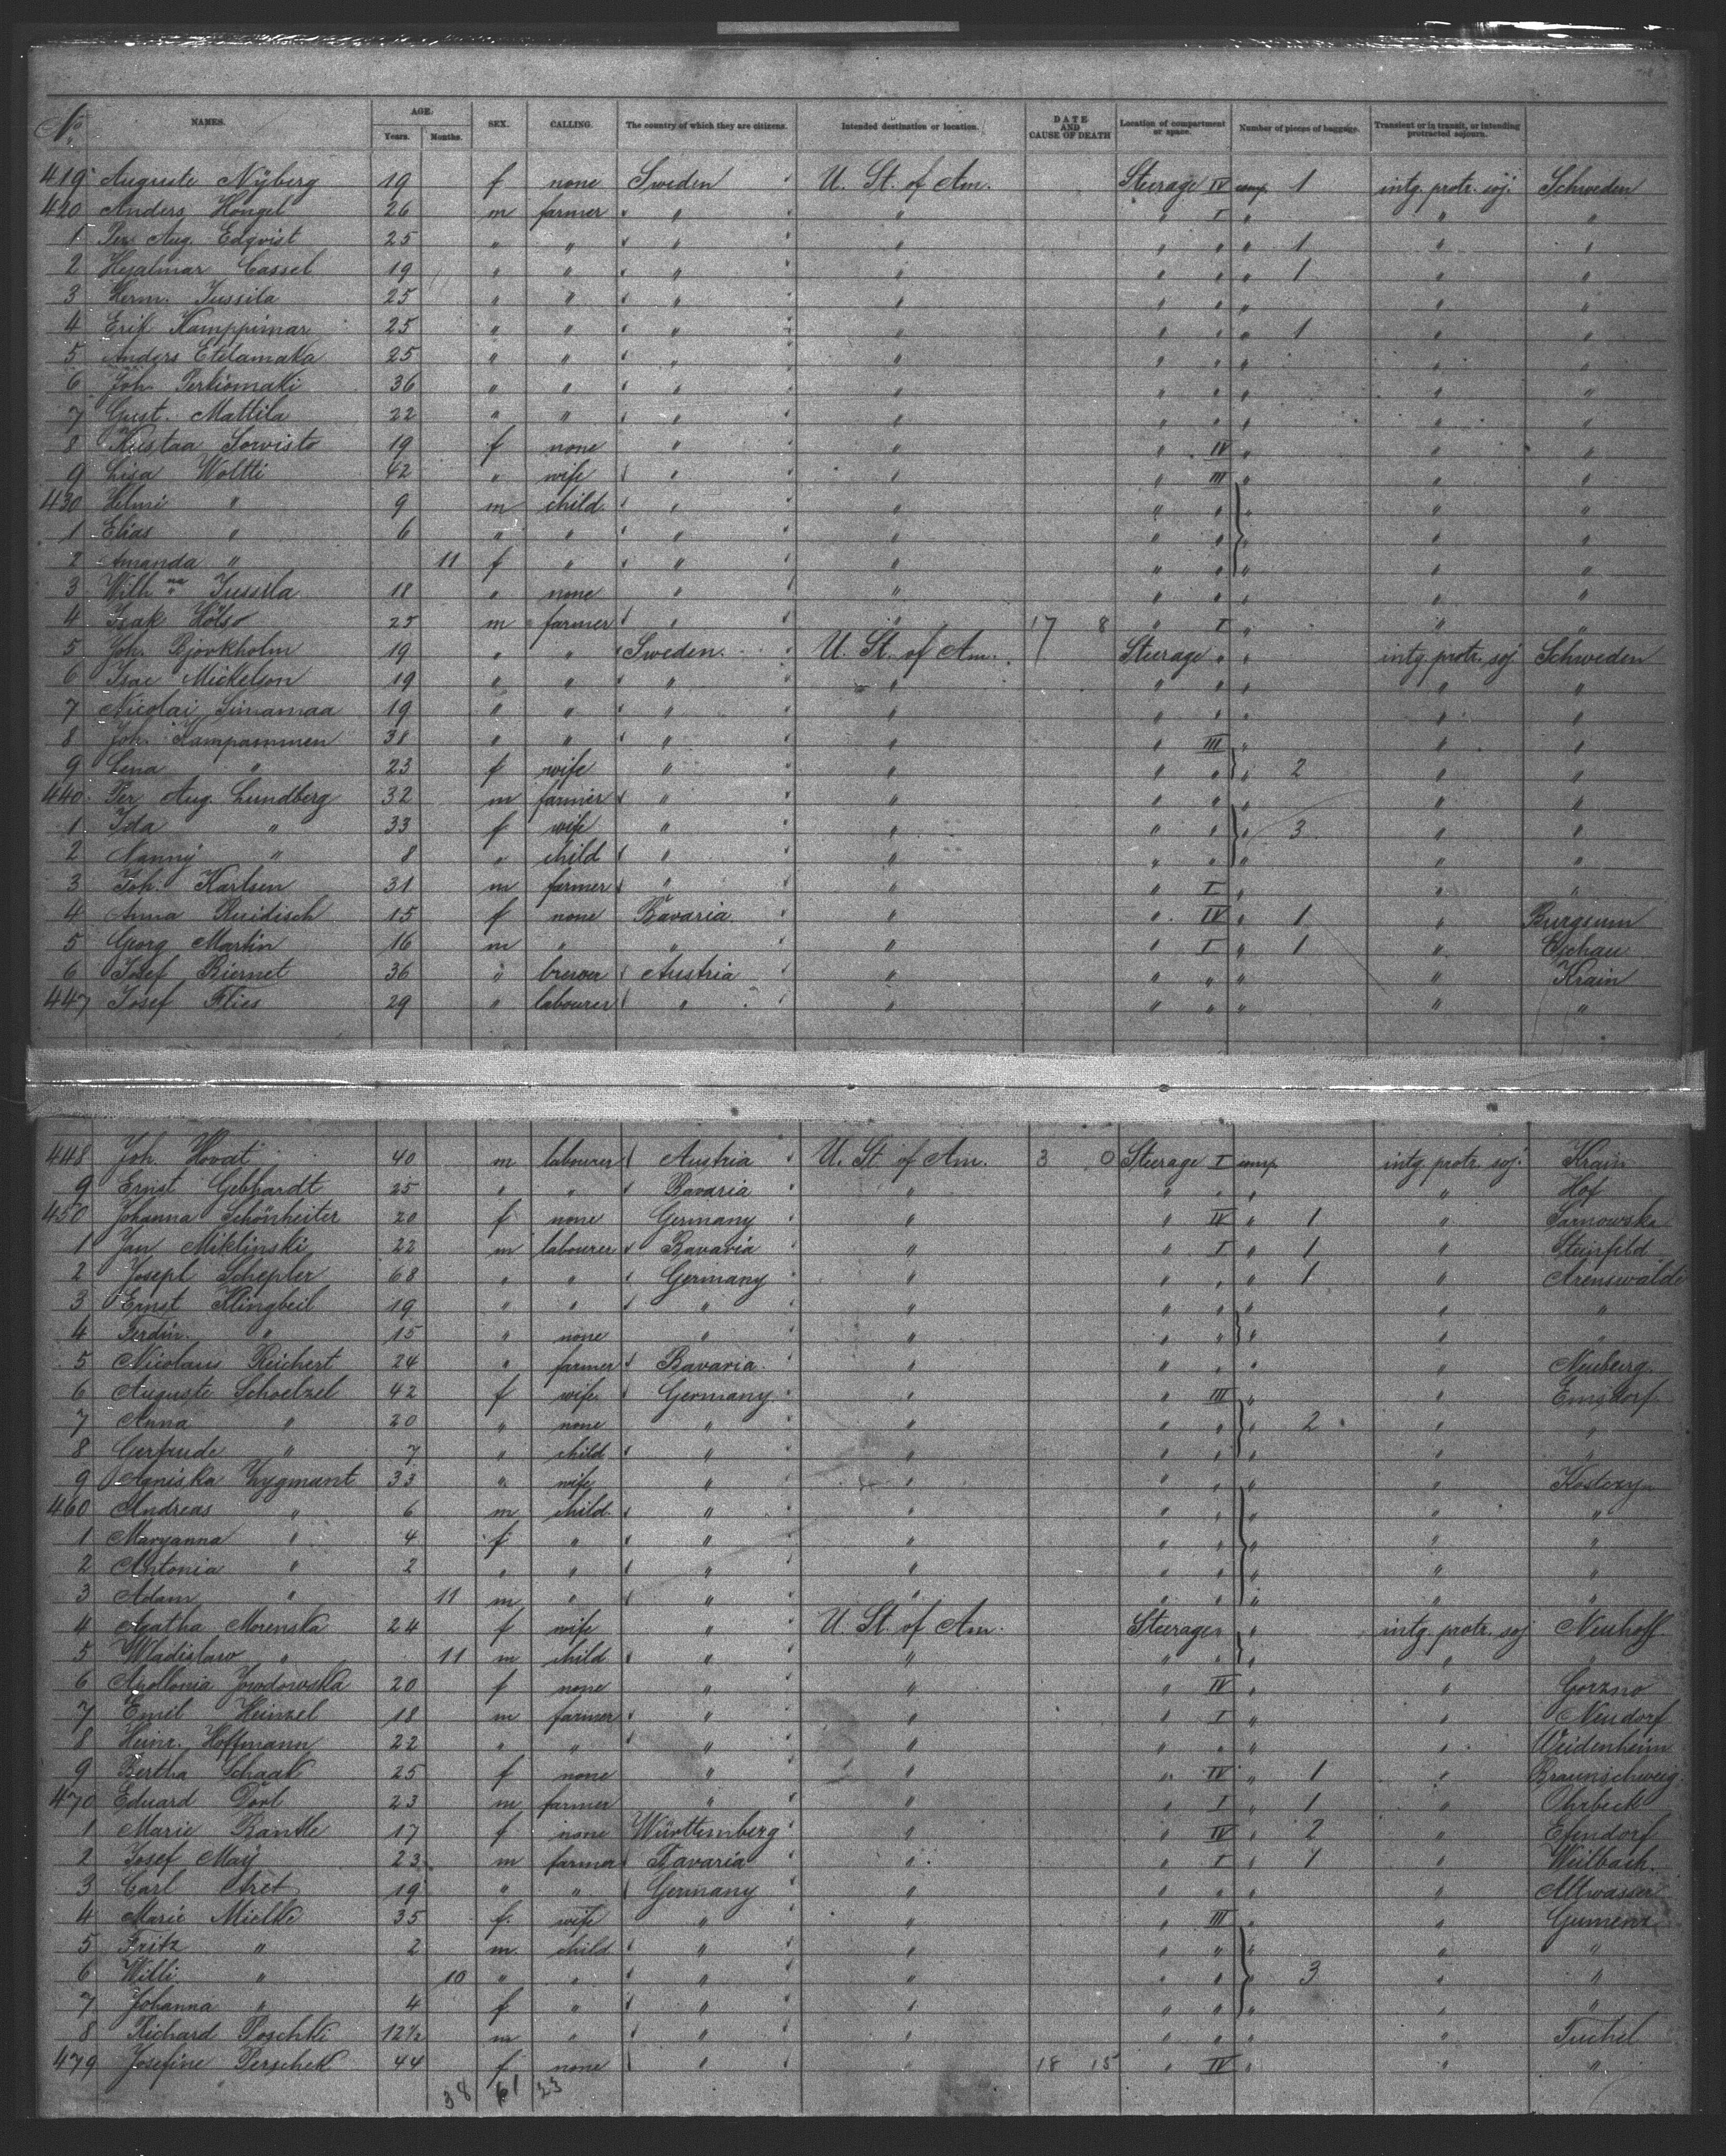 No. NAMES. AGE. Years. Months. SEX. CALLING. The country of which they are citizens. Intended destination or location. DATE AND CAUSE OF DEATH Location of compartment or space. Number of pieces of baggage. Transient or in transit, or intending protracted sojourn.
419 Auguste Nÿberg 19 f none Sweden U. St. of Am. Steerage IV comp. 1 intg. protr. soj. Schweden
420 Anders Hongel 26 m farmer " " " I " " "
1 Per Aug. Edqvist 25 " " " " " " " 1 " "
2 Hjalmar Cassel 19 " " " " " " " 1 " "
3 Herm. Jussila 25 " " " " " " " " "
4 Erik Kamppimar 25 " " " " " " " 1 " "
5 Anders Etelamaka 25 " " " " " " " " "
6 Joh. Perkiomaki 36 " " " " " " " " "
7 Gust. Mattila 22 " " " " " " " " "
8 Kustaa Sorvisto 19 f none " " " IV " " "
9 Lisa Woltti 42 " wife " " " III " " "
430 Helmi " 9 m child " " " " " " "
1 Elias " 6 " " " " " " " " "
2 Amanda " 11 f " " " " " " " "
3 Wilh.na Jussila 18 " none " " " " " "
4 Isak Hölso 25 m farmer " " 17 8 " I " " "
5 Joh. Bjorkholm 19 " " Sweden U. St. of Am. Steerage " " intg. protr. soj Schweden
6 Isac Mickelson 19 " " " " " " " " "
7 Nicolai Simamaa 19 " " " " " " " " "
8 Joh. Kampammen 38 " " " " " III " " "
9 Lena " 23 f wife " " " " " 2 " "
440 Per Aug. Lundberg 32 m farmer " " " " " " "
1 Ida " 33 f wife " " " " " 3 " "
2 Nanny " 8 " child " " " " " " "
3 Joh. Karlsen 31 m farmer " " " I " " "
4 Anna Ruidisch 15 f none Bavaria " " IV " 1 " Burgsum
5 Georg Martin 16 m " " " " I " 1 " Eschau
6 Josef Biernet 36 " brewer Austria " " " " " Krain
447 Josef Flies 29 " labourer " " " " " " "
448 Joh. Hovat 40 m labourer Austria U. St. of Am. 3 0 Steerage I comp. intg. protr. soj. Krain
9 Ernst Gebhardt 25 " " Bavaria " " " " " Hof
450 Johanna Schönheiter 20 f none Germany " " IV " 1 " Sarnowska
1 Jan Miklinski 22 m labourer Bavaria " " I " 1 " Steinfeld
2 Josepl Schepler 68 " " Germany " " " " 1 " Arenswalde
3 Ernst Klingbeil 19 " " " " " " " " "
4 Ferdin. " 15 " none " " " " " " "
5 Nicolaus Reichert 24 " farmer Bavaria " " " " " Neuberg
6 Auguste Schoelzel 42 f wife Germany " " III " " Emsdorf
7 Anna " 20 " none " " " " " 2 " "
8 Gertrude " 7 " child " " " " " " "
9 Agniska Zygmunt 33 " wife " " " " " Kostczyn
460 Andreas " 6 m child " " " " " " "
1 Maryanna " 4 f " " " " " " " "
2 Antonia " 2 " " " " " " " " "
3 Adam " 11 m " " " " " " " "
4 Agatha Morenska 24 f wife " U. St. of Am. Steerage " " intg. protr. soj Neuhoff
5 Wladislaw " 11 m child " " " " " " "
6 Apollonia Jowdowska 20 f none " " " IV " " Gorzno
7 Emil Heinzel 18 m farmer " " " I " " Neudorf
8 Heinr. Hoffmann 22 " " " " " " " " Weidenheim
9 Bertha Schaak 25 f none " " " IV " 1 " Braunschweig
470 Eduard Dörl 23 m farmer " " " I " 1 " Ohrbeck
1 Marie Bantle 17 f none Württemberg " " IV " 2 " Efendorf
2 Josef Maÿ 23 m farmer Bavaria " " I " 1 " Weilbach
3 Carl Aret 19 " " Germany " " " " " Altwasser
4 Marie Mielke 35 f wife " " " III " " Gumenz
5 Fritz " 2 m child " " " " " " "
6 Willi " 10 " " " " " " " 3 " "
7 Johanna " 4 f " " " " " " " "
8 Richard Poschki 12½ m " " " " " " " Tuchel
479 Josefine Perschek 44 f none " " 18 15 " IV " " "
38 61 23